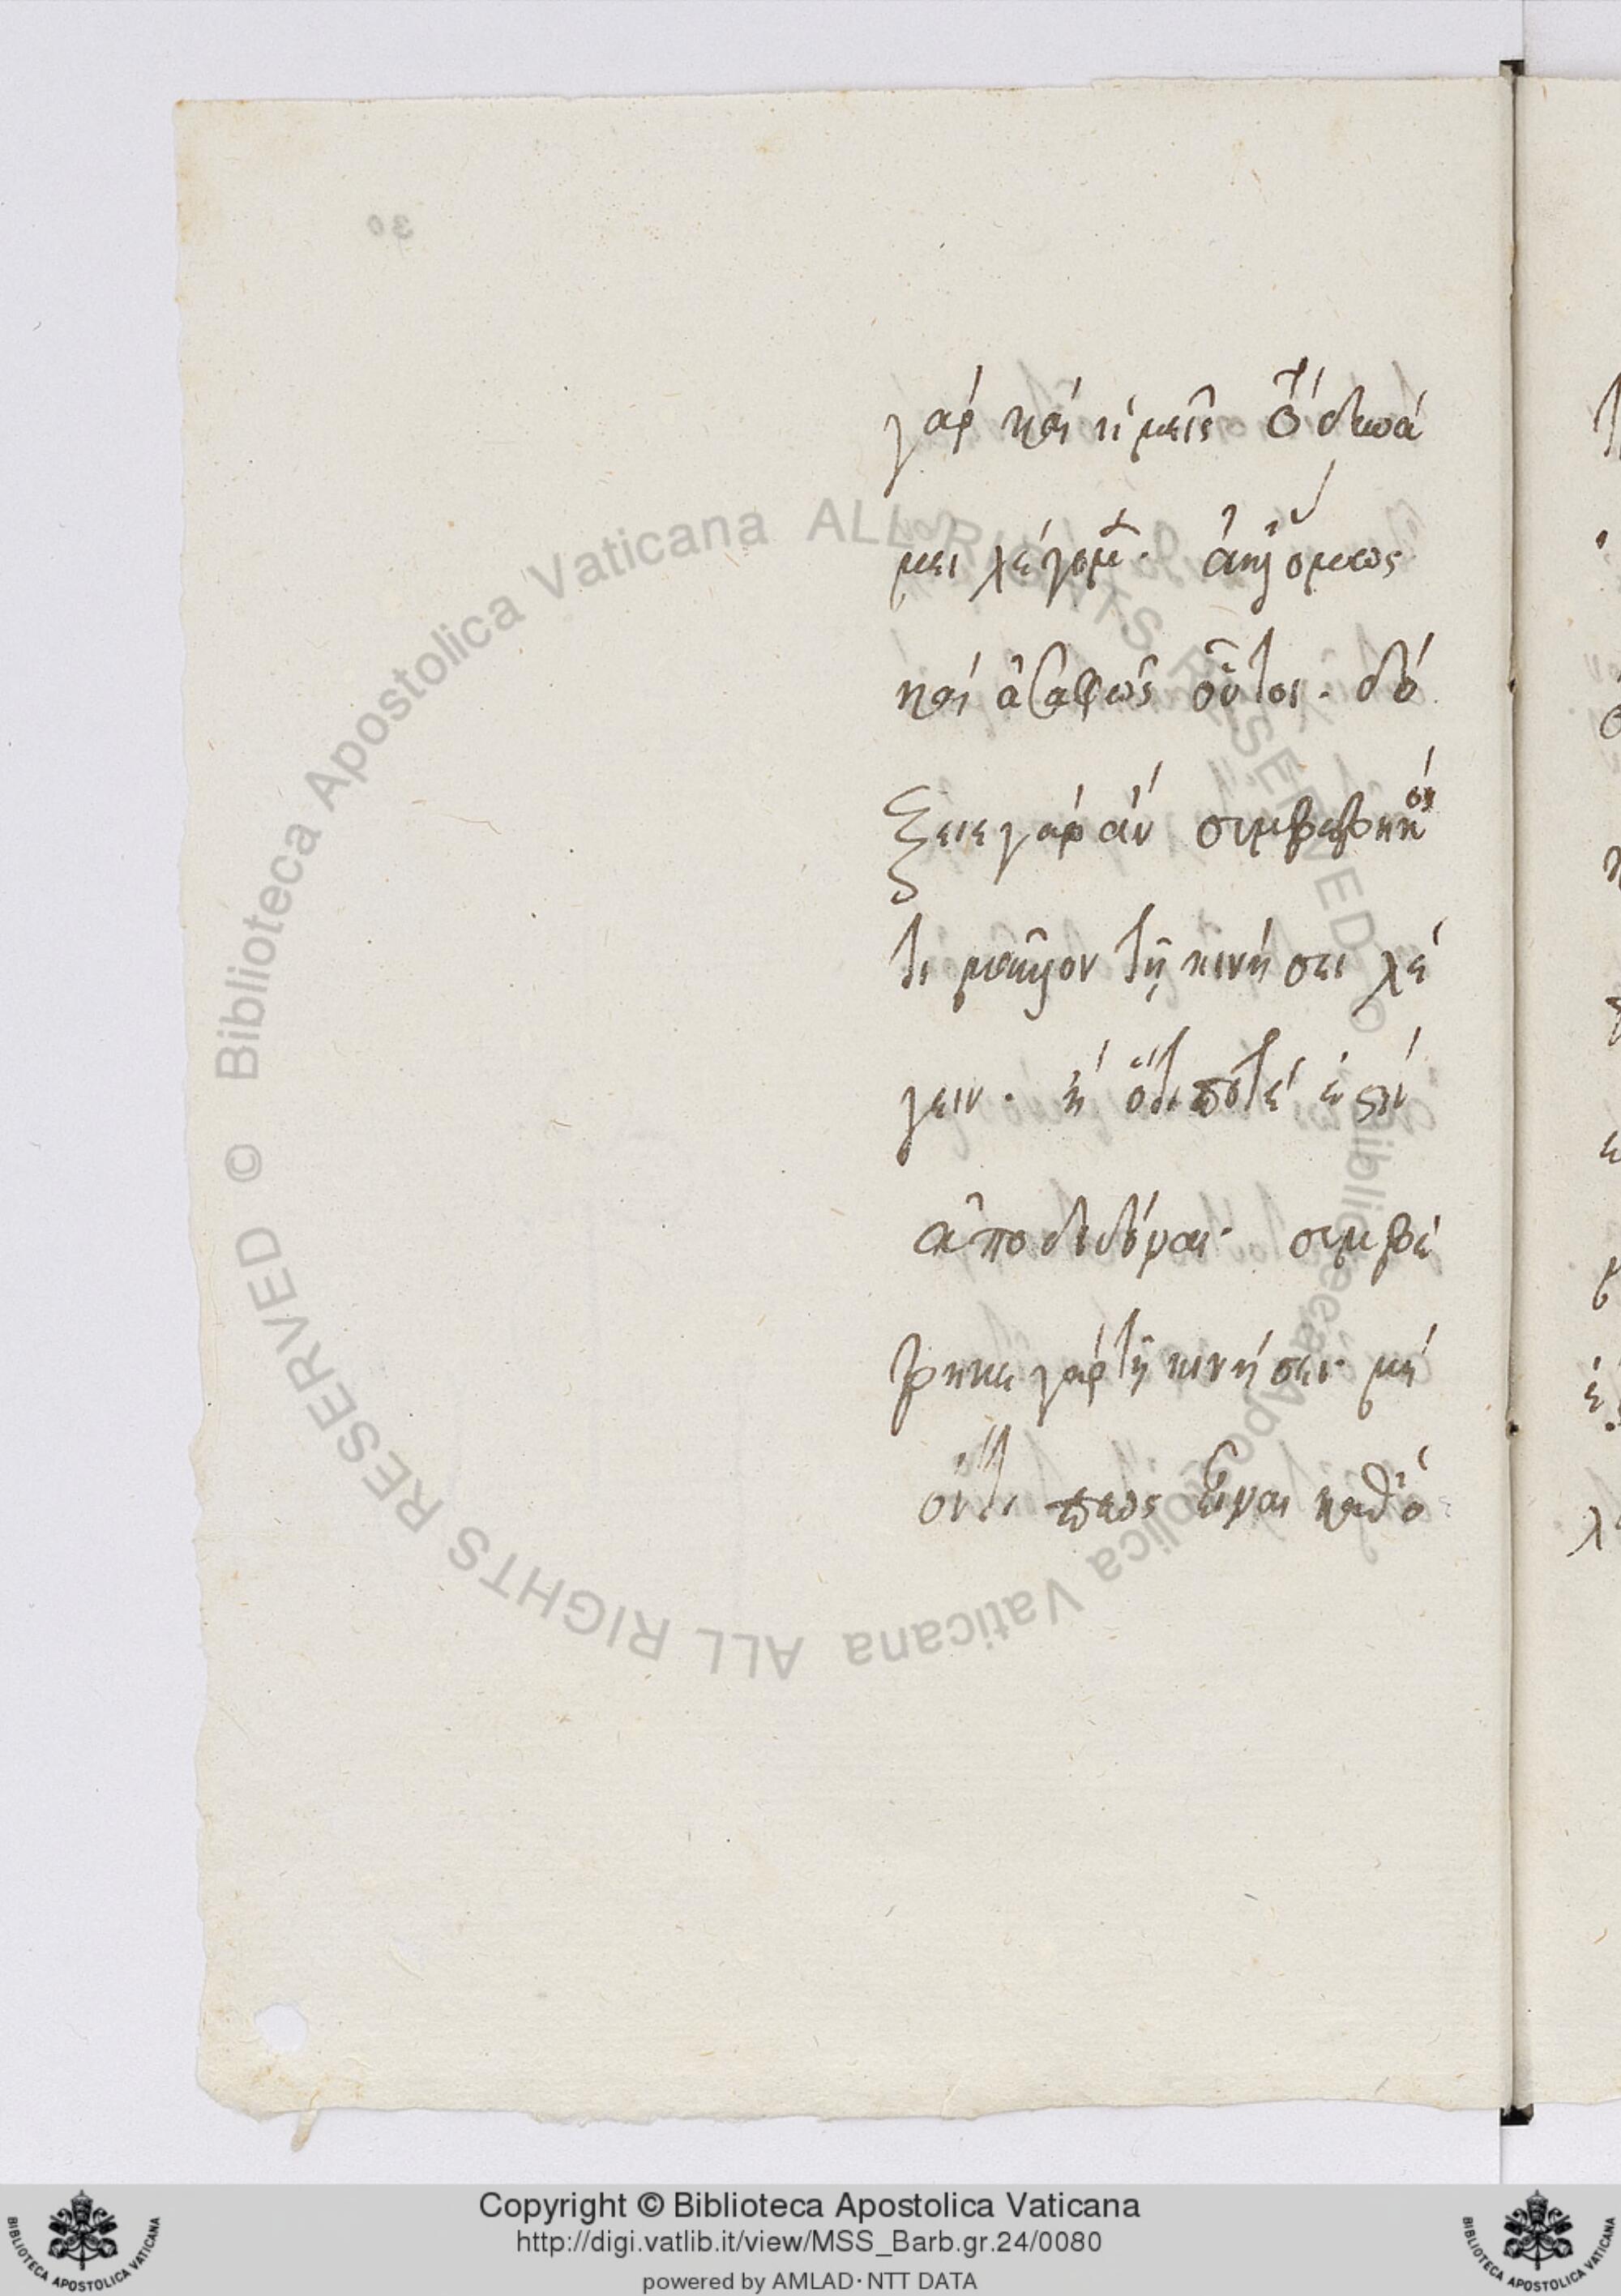 30
γὰρ καὶ ἡμεῖς τὸ δυνά
μει λέγομεν. ἀλλ' ὅμως
καὶ ἀσαφῶς οὗτοι. δό
ξειε γὰρ ἂν συμβεβηκός
τι μᾶλλον τῇ κινήσει λέ
γειν. ἢ ὅτι ποτέ ἐστιν
ἀποδιδόναι. συμβέ
βηκε γὰρ τῇ κινήσει μή
πως εἶναι καθὸ
© Biblioteca Apostolica Vaticana ALL RIGHTS RESERVED © Biblioteca Apostolica Vaticana ALL RIGHTS RESERVED
Copyright © Biblioteca Apostolica Vaticana
http://digi.vatlib.it/view/MSS_Barb.gr.24/0080
powered by AMLAD · NTT DATA
BIBLIOTECA APOSTOLICA VATICANA
BIBLIOTECA APOSTOLICA VATICANA